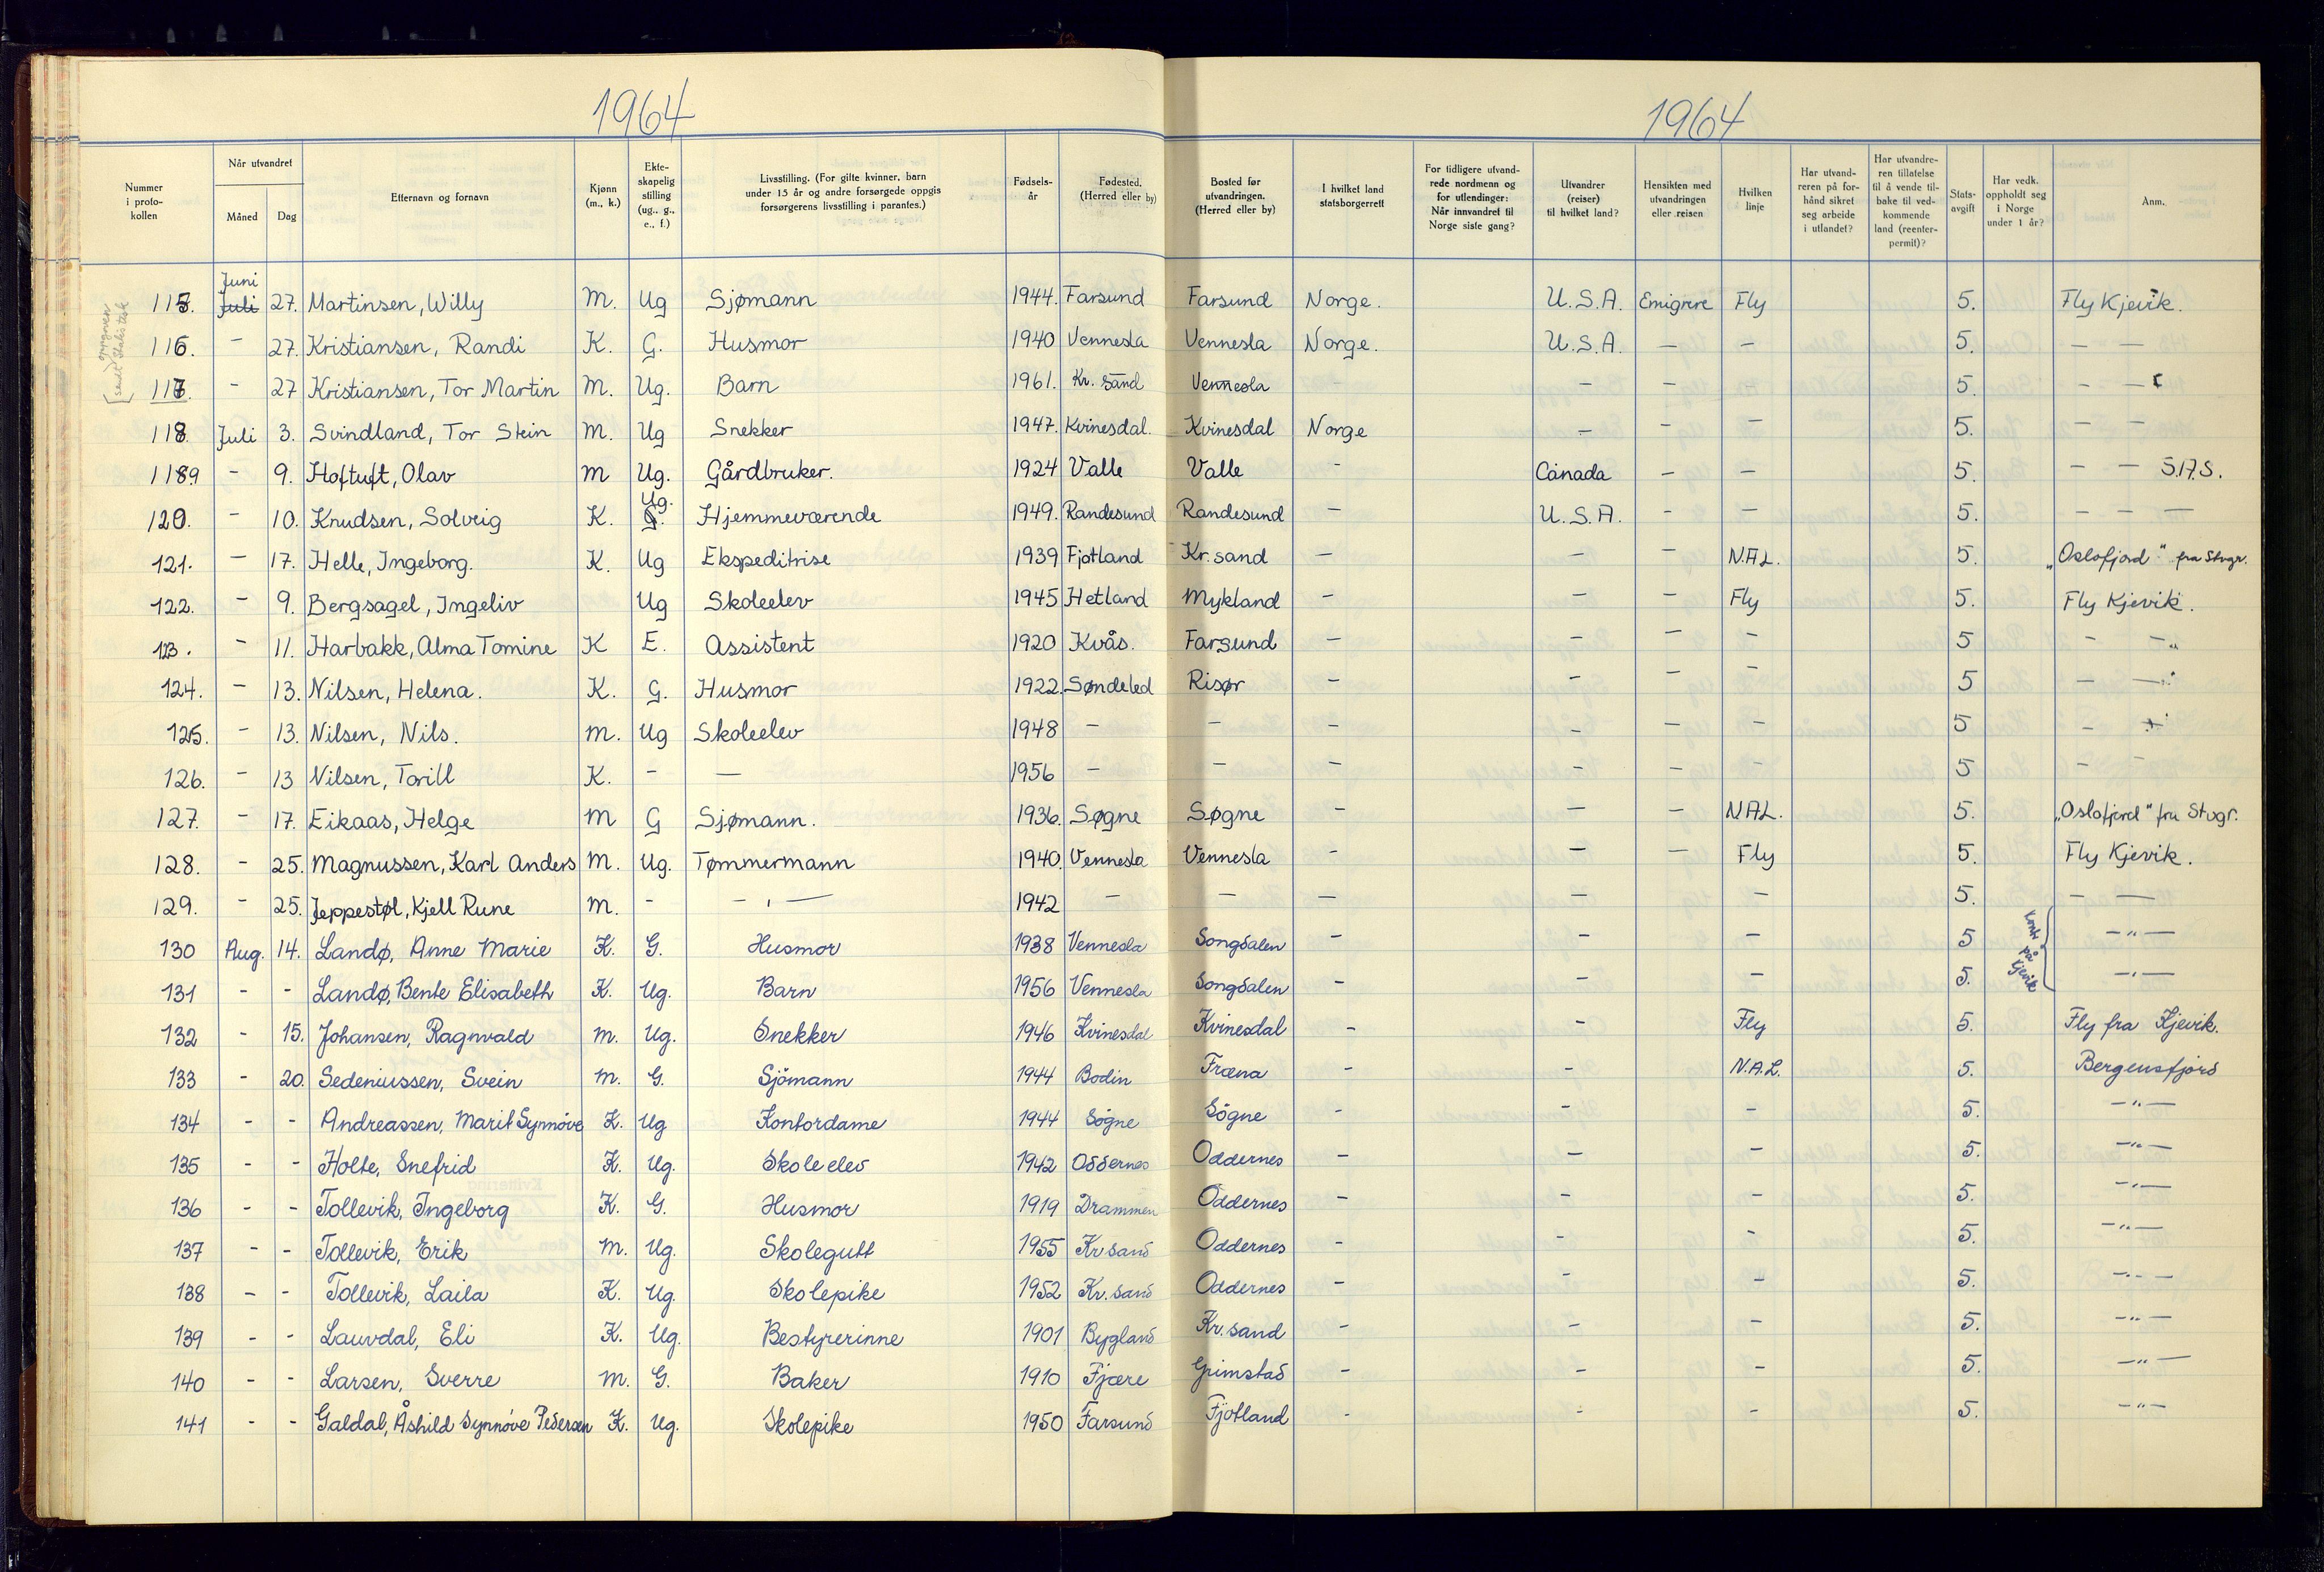 1964 1964
Nummer i protokollen | Når utvandret | Måned | Dag | Etternavn og fornavn | Kjønn (m., k.) | Ekteskapelig stilling (ug., g., e., f.) | Livsstilling. (For gifte kvinner, barn under 15 år og andre forsørgede oppgis forsørgerens livsstilling i parantes.) | Fødselsår | Fødested. (Herred eller by) | Bosted før utvandringen. (Herred eller by) | I hvilket land statsborgerrett | For tidligere utvandrede nordmenn og for utlendinger: Når innvandret til Norge siste gang? | Utvandrer (reiser) til hvilket land? | Hensikten med utvandringen eller reisen | Hvilken linje | Har utvandreren på forhånd sikret seg arbeide i utlandet? | Har utvandreren tillatelse til å vende tilbake til vedkommende land (reenterpermit)? | Statsavgift | Har vedk. oppholdt seg i Norge under 1 år? | Anm.
115. Juni Juli 27. Martinsen, Willy M. Ug Sjømann 1944. Farsund Farsund Norge. U.S.A. Emigrere Fly 5. Fly Kjevik.
116. - 27. Kristiansen, Randi K. G. Husmor 1940 Vennesla Vennesla Norge. U.S.A. — - 5. — —
117. - 27 Kristiansen, Tor Martin M. Ug. Barn 1961. Kr. Sand Vennesla - - - 5. - —
118. Juli 3. Svindland, Tor Stein M. Ug Snekker 1947. Kvinesdal. Kvinesdal Norge - - - 5. - -
1189 - 9. Hoftuft, Olav M Ug. Gårdbruker. 1924 Valle Valle - Canada - - 5. - - S.A.S.
120. - 10. Knudsen, Solveig K. Ug. G. Hjemmeværende 1949. Randesund Randesund - U.S.A. - - 5. - - —
121. - 17. Helle, Ingeborg. K. Ug Ekspeditrise 1939 Fjotland Kr. sand - - - N.A.L. 5. „Oslofjord" fra Stvgr.
122. - 9. Bergsagel, Ingeliv Ug Skoleelev 1945 Hetland Mykland - - - Fly 5. Fly Kjevik.
123. - 11. Harbakk, Alma Tomine K E. Assistent 1920 Kvås. Farsund - - - - 5 - -
124. - 13. Nilsen, Helena. K. G. Husmor 1922. Søndeled Risør - - - - 5 - —
125. - 13. Nilsen, Nils. M. Ug Skoleelev 1948 - - - - - - 5 -
126. - 13 Nilsen, Torill K. - — 1956 - - - - - - 5 - -
127. - 17. Eikaas, Helge M G Sjømann. 1936. Søgne Søgne - - - N.A.L. 5. „Oslofjord" fra Stvgr.
128. - 25. Magnussen, Karl Anders M. Ug. Tømmermann 1940. Vennesla Vennesla - - - Fly 5. Fly Kjevik.
129. - 25. Jeppestøl, Kjell Rune M. - - " — 1942 - - - - - 5. - —
130 Aug. 14. Landø, Anne Marie K. G. Husmor 1938 Vennesla Songdalen - - - 5 — " —
131 - - Landø, Bente Elisabeth K. Ug. Barn 1956 Vennesla Songdalen - - - 5. på Kjevik — " —
132 - 15. Johansen, Ragnvald M. Ug. Snekker 1946 Kvinesdal Kvinesdal - - Fly 5. Fly fra Kjevik.
133 - 20. Sedeniussen, Svein M. G. Sjömann 1944 Bodin Fræna - - N.A.L. 5. Bergensfjord
134 - - Andreassen, Marit Synnöve K. Ug Kontordame 1944 Sögne Sögne - - - 5. — " —
135 - - Holte, Snefrid K. Ug. Skoleelev 1942 Oddernes Oddernes - - - 5. — " —
136 - - Tollevik, Ingeborg K. G. Husmor 1919 Drammen Oddernes - - - 5. — " —
137 - - Tollevik, Erik M. Ug. Skolegutt 1955 Kr sand Oddernes - - - 5. — " —
138 - - Tollevik, Laila K. Ug. Skolepike 1952 Kr. sand Oddernes - - - 5. — " —
139 - - Lauvdal, Eli K. Ug. Bestyrerinne 1901 Bygland Kr. sand - - - 5. — " —
140 - - Larsen, Sverre M. G. Baker 1910 Fjære Grimstad - - - 5. — " —
141 - - Galdal, Åshild Synnöve Pedersen K. Ug. Skolepike 1950 Farsund Fjotland - - - 5. — " —